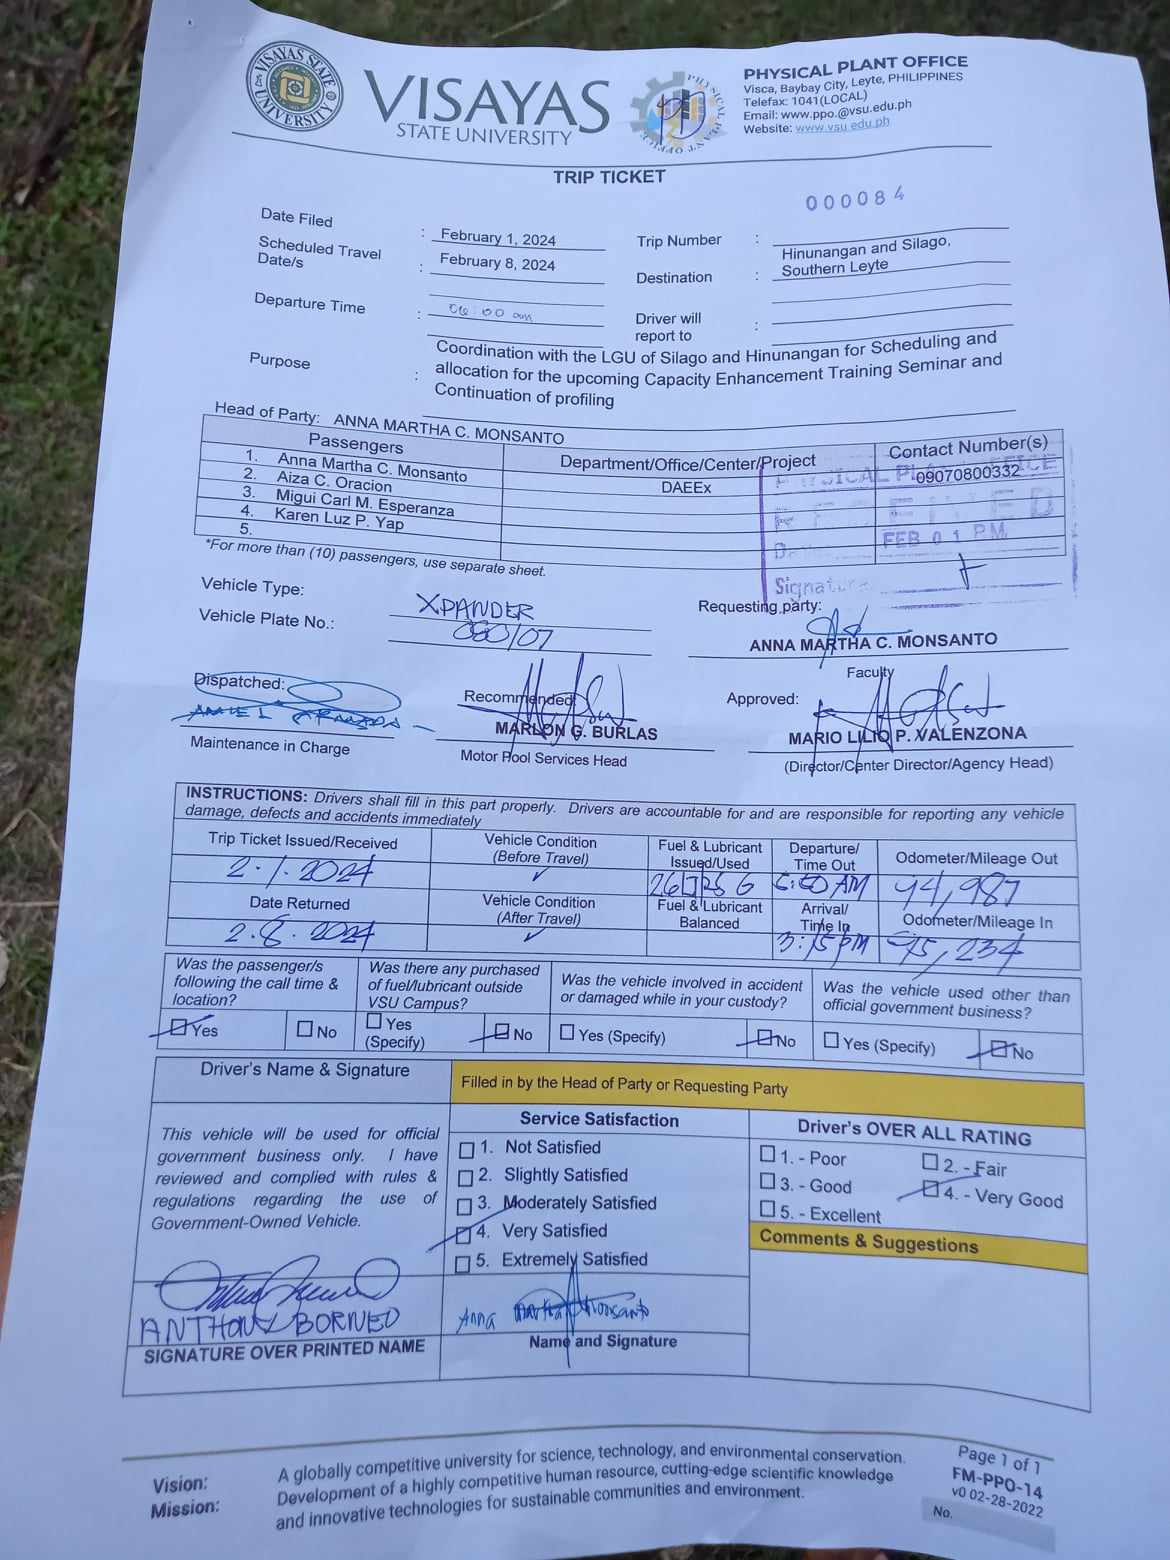 VISAYAS STATE UNIVERSITY
VISAYAS
STATE UNIVERSITY
PHYSICAL PLANT OFFICE
PHYSICAL PLANT OFFICE
Visca, Baybay City, Leyte, PHILIPPINES
Telefax: 1041(LOCAL)
Email: www.ppo.@vsu.edu.ph
Website: www.vsu.edu.ph
TRIP TICKET
000084
Date Filed : February 1, 2024 Trip Number :
Scheduled Travel Date/s : February 8, 2024 Destination : Hinunangan and Silago, Southern Leyte
Departure Time : 06:00 am Driver will report to :
Purpose : Coordination with the LGU of Silago and Hinunangan for Scheduling and
allocation for the upcoming Capacity Enhancement Training Seminar and
Continuation of profiling
Head of Party: ANNA MARTHA C. MONSANTO
Passengers Department/Office/Center/Project Contact Number(s)
1. Anna Martha C. Monsanto DAEEx 09070800332
2. Aiza C. Oracion
3. Migui Carl M. Esperanza
4. Karen Luz P. Yap
5.
*For more than (10) passengers, use separate sheet.
PHYSICAL PLANT OFFICE
RECEIVED
FEB 01 P.M.
Signature
Vehicle Type: XPANDER
Vehicle Plate No.:
Requesting party:
ANNA MARTHA C. MONSANTO
Faculty
Dispatched: Recommended: Approved:
MARLON G. BURLAS MARIO LILIO P. VALENZONA
Maintenance in Charge Motor Pool Services Head (Director/Center Director/Agency Head)
INSTRUCTIONS: Drivers shall fill in this part properly. Drivers are accountable for and are responsible for reporting any vehicle
damage, defects and accidents immediately
Trip Ticket Issued/Received Vehicle Condition (Before Travel) Fuel & Lubricant Issued/Used Departure/ Time Out Odometer/Mileage Out
2.1.2024 ✓ AM 94,987
Date Returned Vehicle Condition (After Travel) Fuel & Lubricant Balanced Arrival/ Time In Odometer/Mileage In
2.8.2024 ✓ 3:15 PM 95,234
Was the passenger/s following the call time & location? Was there any purchased of fuel/lubricant outside VSU Campus? Was the vehicle involved in accident or damaged while in your custody? Was the vehicle used other than official government business?
☑ Yes ☐ No ☐ Yes (Specify) ☑ No ☐ Yes (Specify) ☑ No ☐ Yes (Specify) ☑ No
Driver's Name & Signature
Filled in by the Head of Party or Requesting Party
This vehicle will be used for official
government business only. I have
reviewed and complied with rules &
regulations regarding the use of
Government-Owned Vehicle.
ANTHONY BORNEO
SIGNATURE OVER PRINTED NAME
Service Satisfaction
☐ 1. Not Satisfied
☐ 2. Slightly Satisfied
☐ 3. Moderately Satisfied
☑ 4. Very Satisfied
☐ 5. Extremely Satisfied
Anna Martha Monsanto
Name and Signature
Driver's OVER ALL RATING
☐ 1. - Poor ☐ 2. - Fair
☐ 3. - Good ☑ 4. - Very Good
☐ 5. - Excellent
Comments & Suggestions
Vision: A globally competitive university for science, technology, and environmental conservation.
Mission: Development of a highly competitive human resource, cutting-edge scientific knowledge
and innovative technologies for sustainable communities and environment.
Page 1 of 1
FM-PPO-14
v0 02-28-2022
No.